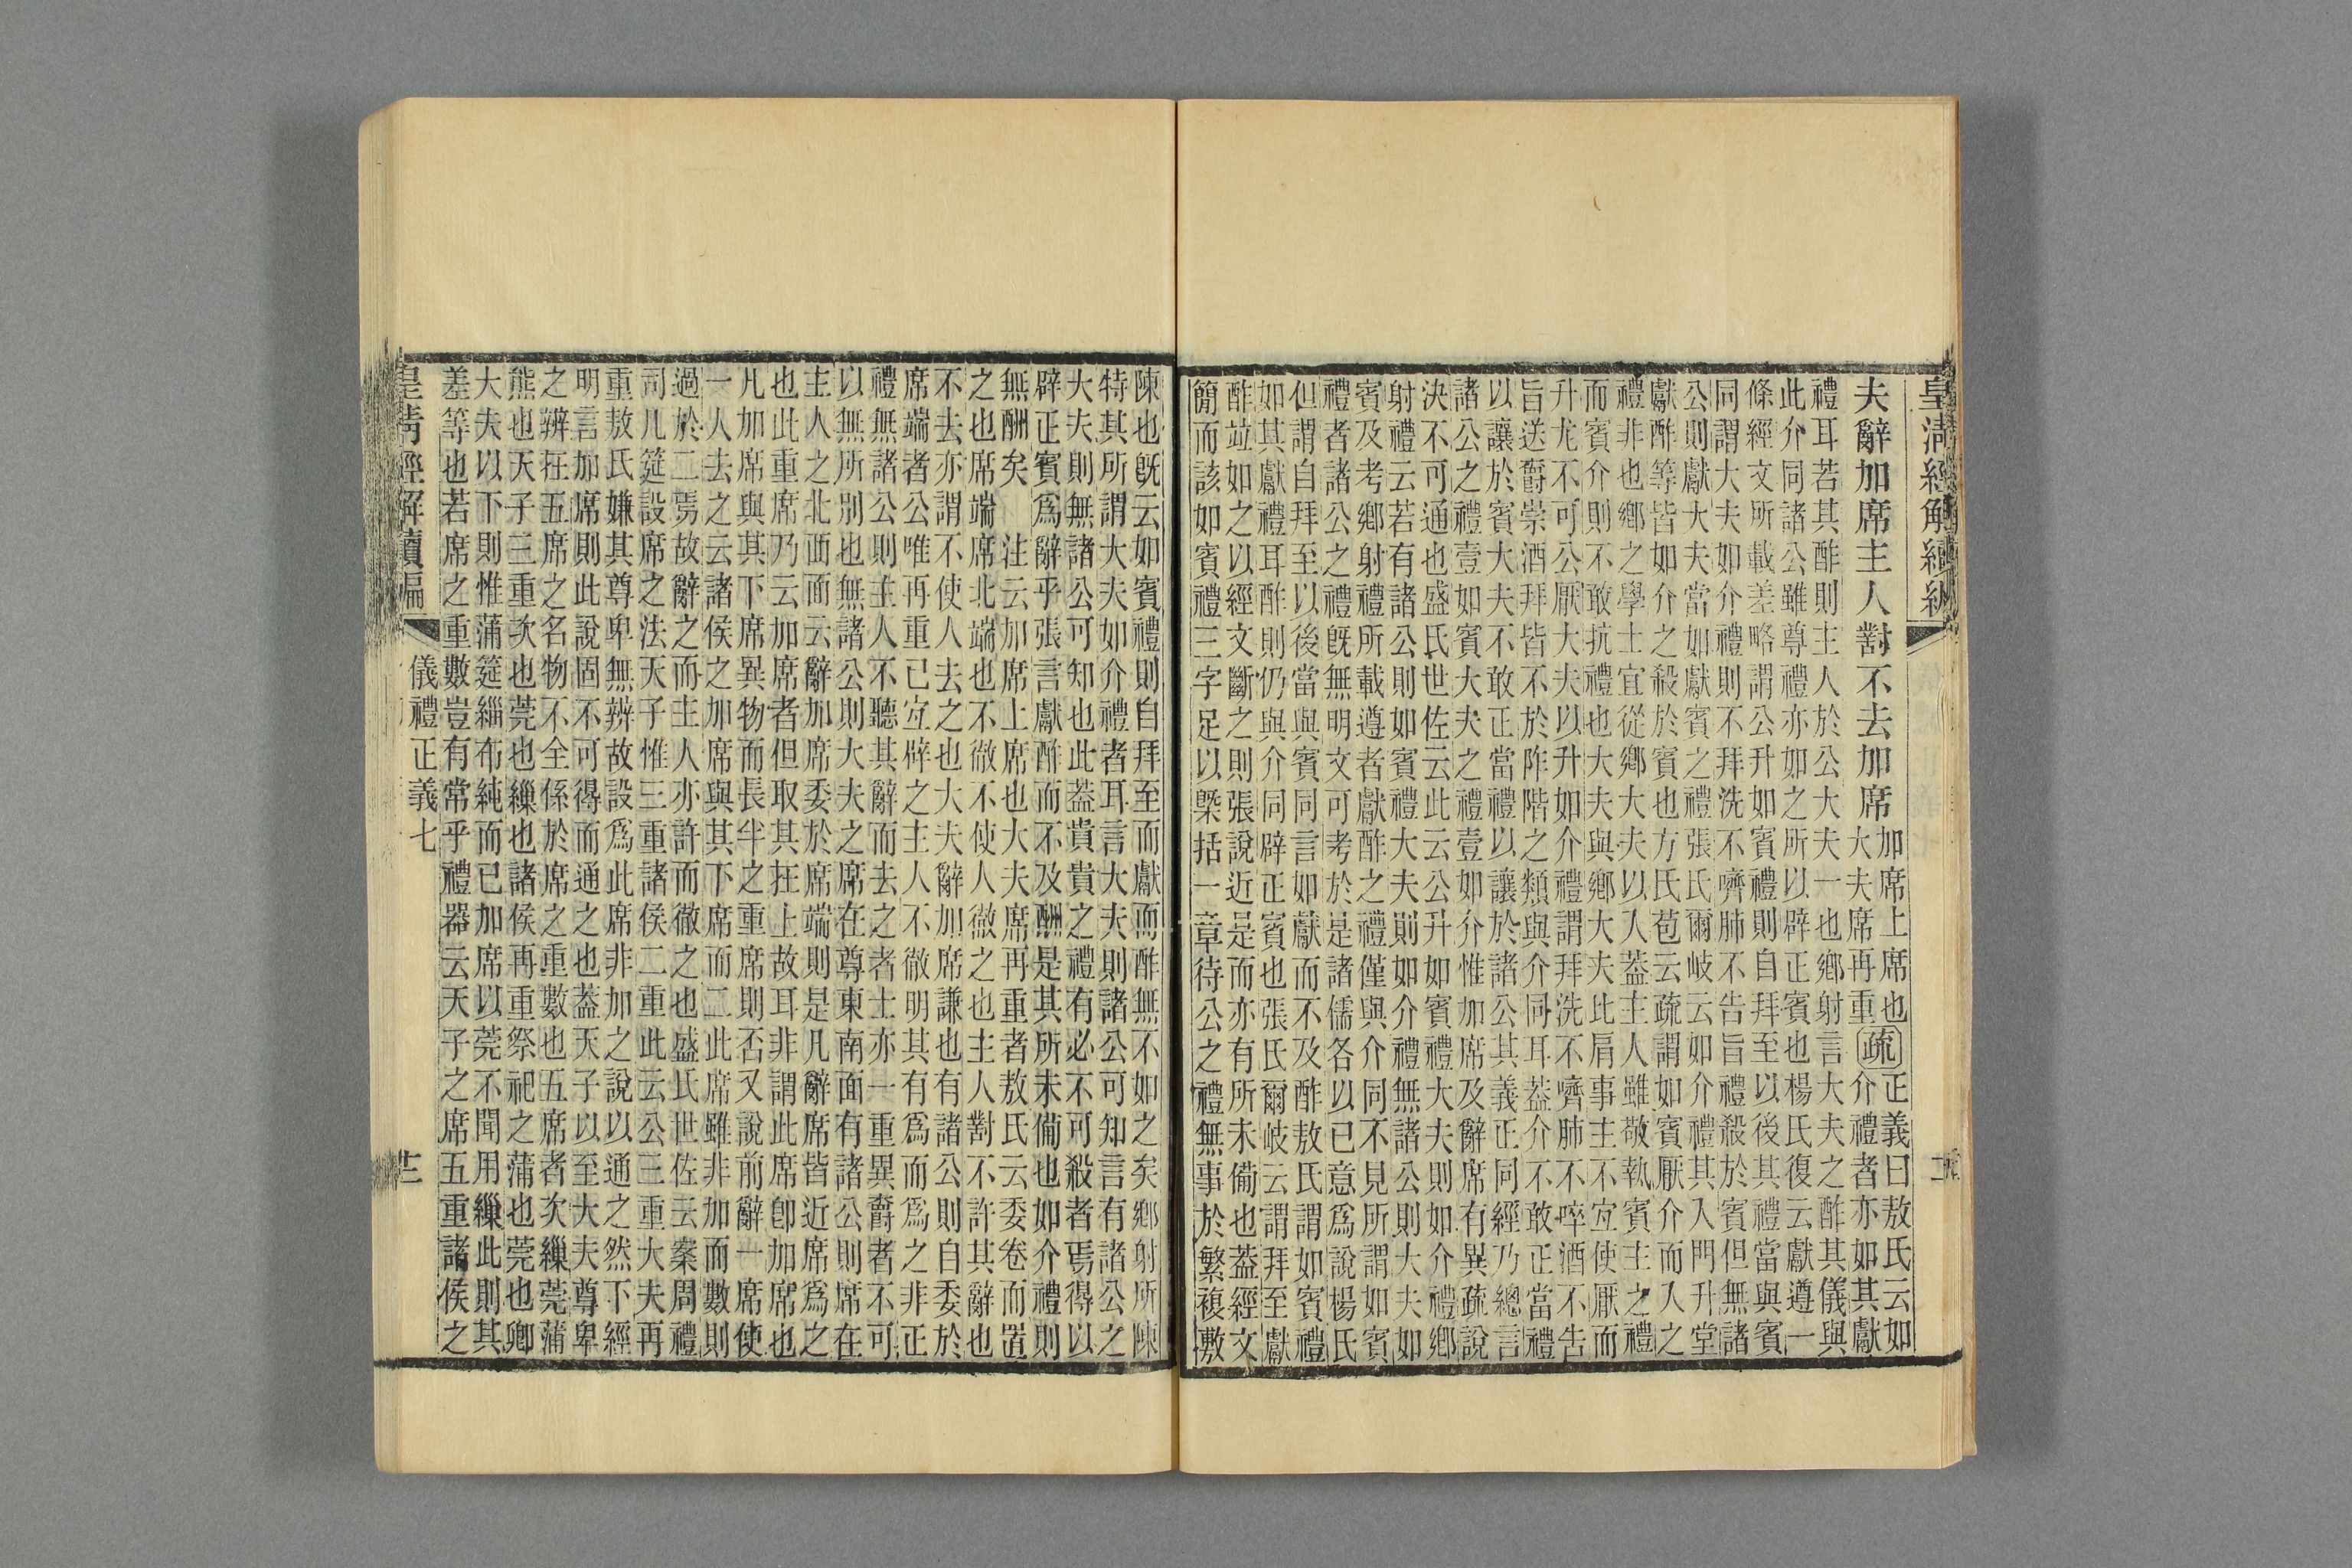 皇淸經解續編
夫辭加席主人對不去加席
加席上席也
大夫席再重
疏
正義曰敖氏云如
介禮者亦如其獻
禮耳若其酢則主人於公大夫一也鄉射言大夫之酢其儀與
此介同諸公雖尊禮亦如之所以辟正賓也楊氏復云獻遵一
條經文所載差略謂公升如賓禮則自拜至以後其禮當與賓
同謂大夫如介禮則不拜洗不嚌肺不告旨禮殺於賓但無諸
公則獻大夫當如獻賓之禮張氏爾岐云如介禮其入門升堂
獻酢等皆如介之殺於賓也方氏苞云疏謂如賓厭介而入之
禮非也鄉之學士宜從鄉大夫以入蓋主人雖敬執賓主之禮
而賓介則不敢抗禮也大夫與鄉大夫比肩事主不宜使厭而
升尤不可公厭大夫以升如介禮謂拜洗不嚌肺不啐酒不告
旨送爵崇酒拜皆不於阼階之類與介同耳蓋介不敢正當禮
以讓於賓大夫不敢正當禮以讓於諸公其義正同經乃總言
諸公之禮壹如賓大夫之禮壹如介惟加席及辭席有異疏說
決不可通也盛氏世佐云此云公升如賓禮大夫則如介禮鄉
射禮云若有諸公則如賓禮大夫則如介禮無諸公則大夫如
賓及考鄉射禮所載遵者獻酢之禮僅與介同不見所謂如賓
禮者諸公之禮旣無明文可考於是諸儒各以已意爲說楊氏
但謂自拜至以後當與賓同言如獻而不及酢敖氏謂如賓禮
如其獻禮耳酢則仍與介同辟正賓也張氏爾岐云謂拜至獻
酢竝如之以經文斷之則張說近是而亦有所未備也蓋經文
簡而該如賓禮三字足以槩括一章待公之禮無事於繁複敷
陳也旣云如賓禮則自拜至而獻而酢無不如之矣鄉射所陳
特其所謂大夫如介禮者耳言大夫則諸公可知言有諸公之
大夫則無諸公可知也此蓋貴貴之禮有必不可殺者焉得以
辟正賓爲辭乎張言獻酢而不及酬是其所未備也如介禮則
無酬矣　注云加席上席也大夫席再重者敖氏云委卷而置
之也席端席北端也不徹不使人徹之也主人對不許其辭也
不去亦謂不使人去之也大夫辭加席謙也有諸公則自委於
席端者公唯再重已宜辟之主人不徹明其有爲而爲之非正
禮無諸公則主人不聽其辭而去之者士亦一重異爵者不可
以無所別也無諸公則大夫之席在尊東南面有諸公則席在
主人之北西面云辭加席委於席端則是凡辭席皆近席爲之
也此重席乃云加席者但取其在上故耳非謂此席卽加席也
凡加席與其下席異物而長半之重席則否又說前辭一席使
一人去之云諸侯之加席與其下席而二此席雖非加而數則
過於二焉故辭之而主人亦許而徹之也盛氏世佐云案周禮
司几筵設席之法天子惟三重諸侯二重此云公三重大夫再
重敖氏嫌其尊卑無辨故設爲此席非加之說以通之然下經
明言加席則此說固不可得而通之也蓋天子以至大夫尊卑
之辨在五席之名物不全係於席之重數也五席者次繅莞蒲
熊也天子三重次也莞也繅也諸侯再重祭祀之蒲也莞也卿
大夫以下則惟蒲筵緇布純而已加席以莞不聞用繅此則其
差等也若席之重數豈有常乎禮器云天子之席五重諸侯之
皇淸經解續編
儀禮正義七